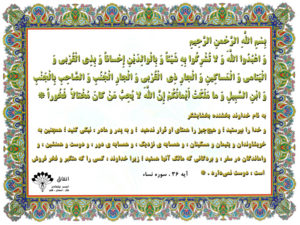 بِسْمِ اللَّهِ الرَّحْمنِ الرَّحِيمِ
وَ اعْبُدُوا اللَّهَ وَ لا تُشْرِكُوا بِهِ شَيْئاً وَ بِالْوالِدَيْنِ إِحْساناً وَ بِذِي الْقُرْبى وَ
الْيَتامى وَ الْمَساكِينِ وَ الْجارِ ذِي الْقُرْبى وَ الْجارِ الْجُنُبِ وَ الصَّاحِبِ بِالْجَنْبِ
وَ ابْنِ السَّبِيلِ وَ ما مَلَكَتْ أَيْمانُكُمْ إِنَّ اللَّهَ لا يُحِبُّ مَنْ كانَ مُخْتالاً فَخُوراً
به نام خداوند بخشنده بخشایشگر
و خدا را بپرستید و هیچ‌چیز را همتای او قرار ندهید و به پدر و مادر ، نیکی کنید همچنین به
خویشاوندان و یتیمان و مسکینان ، و همسایه ی نزدیک ، و همسایه ی دور ، و دوست و همنشین ، و
واماندگان در سفر ، و بردگانی که مالک آنها هستید زیرا خداوند ، کسی را که متکبر و فخر فروش
است ، دوست نمی‌دارد .
آیه ۳۶ ، سوره نساء
انفاق